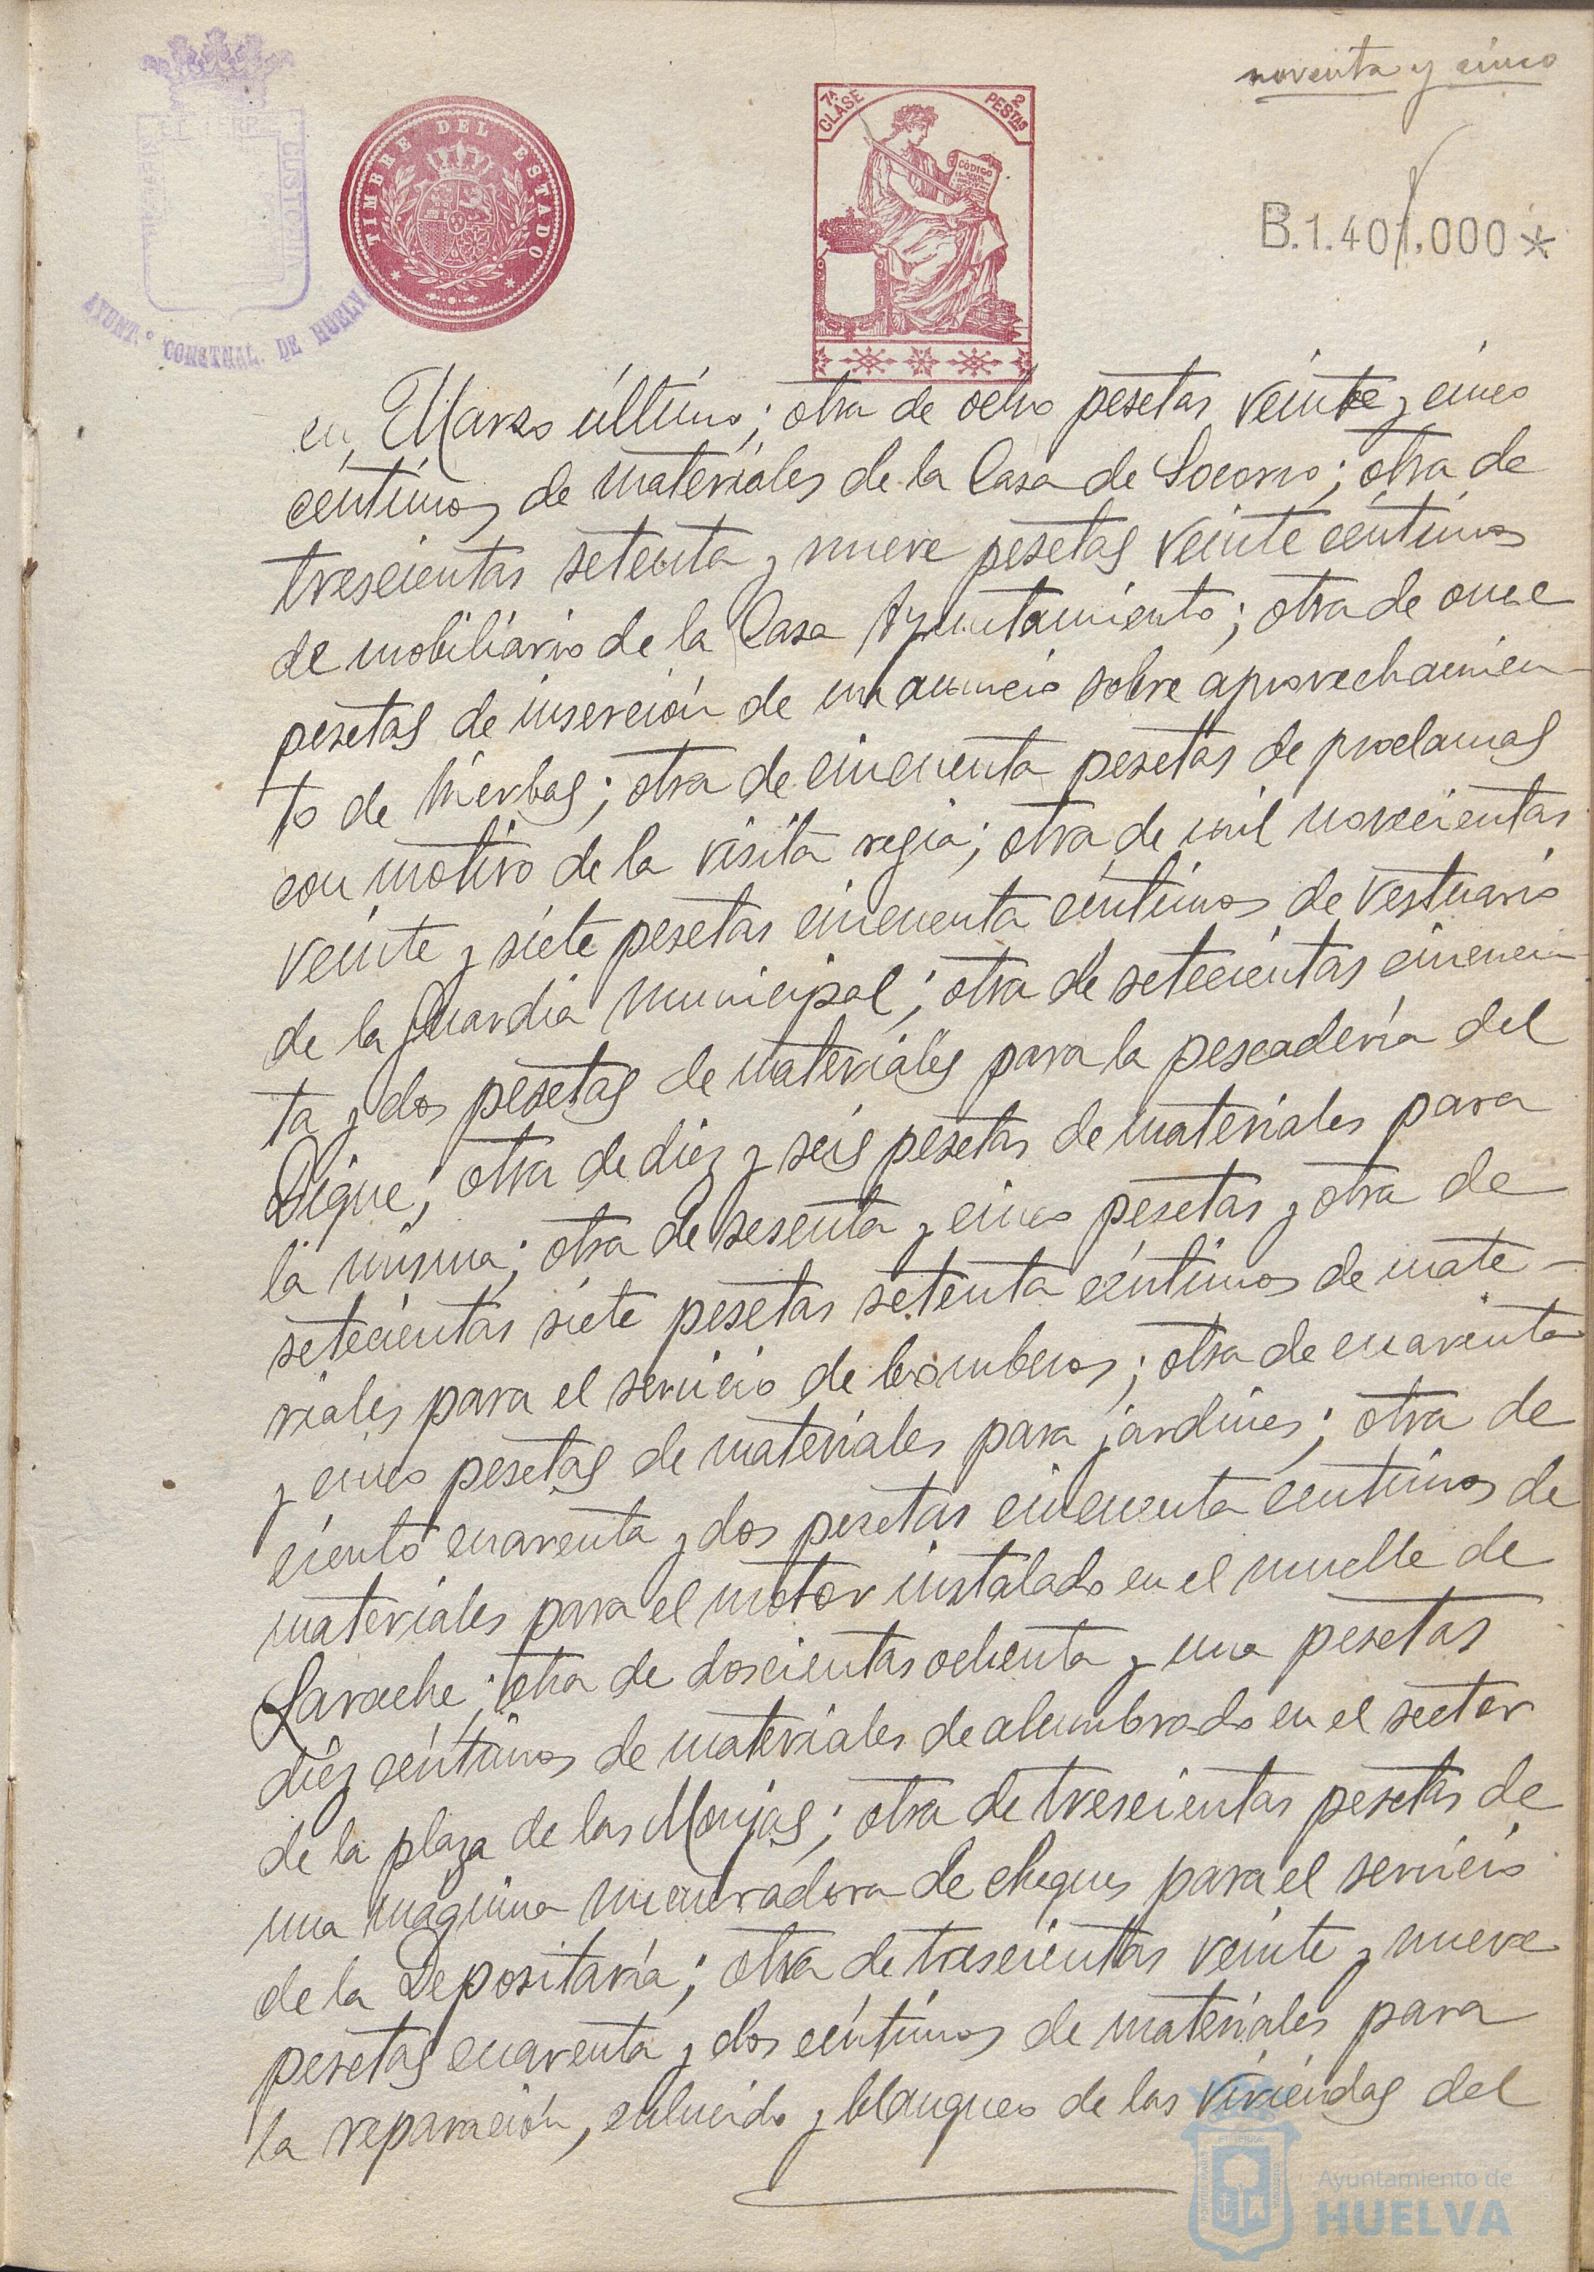 noventa y cinco
TIMBRE DEL ESTADO
7ª CLASE
2 PESTAS
CÓDIGO
B.1.401.000 *
CUSTODIA
AYUNT.º CONSTNAL. DE HUELVA
en Marzo último; otra de ocho pesetas veinte y cinco
céntimos de materiales de la Casa de Socorro; otra de
trescientas setenta y nueve pesetas veinte céntimos
de mobiliario de la Casa Ayuntamiento; otra de once
pesetas de inserción de un anuncio sobre aprovechamien-
to de hierbas; otra de cincuenta pesetas de proclamas
con motivo de la visita regia; otra de mil novecientas
veinte y siete pesetas cincuenta céntimos de vestuario
de la Guardia municipal; otra de setecientas cincuen-
ta y dos pesetas de materiales para la pescadería del
Dique; otra de diez y seis pesetas de materiales para
la misma; otra de sesenta y cinco pesetas y otra de
setecientas siete pesetas setenta céntimos de mate-
riales para el servicio de bomberos; otra de cuarenta
y cinco pesetas de materiales para jardines; otra de
ciento cuarenta y dos pesetas cincuenta centimos de
materiales para el motor instalado en el muelle de
Larache; otra de doscientas ochenta y una pesetas
diez céntimos de materiales de alumbrado en el sector
de la plaza de las Monjas; otra de trescientas pesetas de
una maquina numeradora de cheques para el servicio
de la Depositaría; otra de trescientas veinte y nueve
pesetas cuarenta y dos céntimos de materiales para
la reparación, enlucido y blanqueo de las viviendas del
Ayuntamiento de
HUELVA